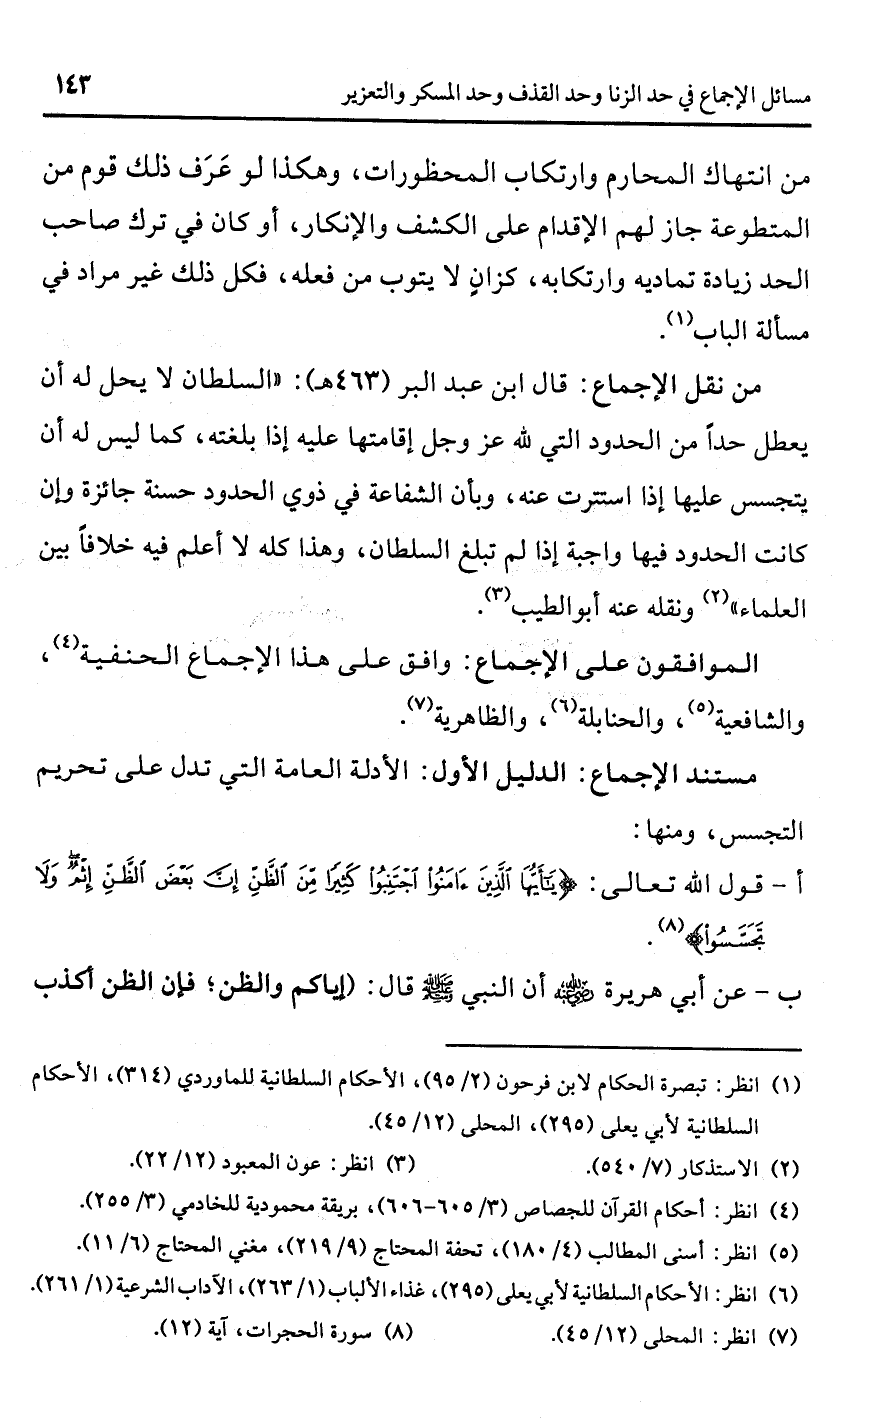 مسائل الإجماع في حد الزنا وحد القذف وحد المسكر والتعزير ١٤٣
من انتهاك المحارم وارتكاب المحظورات، وهكذا لو عَرَف ذلك قوم من
المتطوعة جاز لهم الإقدام على الكشف والإنكار، أو كان في ترك صاحب
الحد زيادة تماديه وارتكابه، كزانٍ لا يتوب من فعله، فكل ذلك غير مراد في
مسألة الباب(١).
من نقل الإجماع: قال ابن عبد البر (٤٦٣هـ): «السلطان لا يحل له أن
يعطل حداً من الحدود التي لله عز وجل إقامتها عليه إذا بلغته، كما ليس له أن
يتجسس عليها إذا استترت عنه، وبأن الشفاعة في ذوي الحدود حسنة جائزة وإن
كانت الحدود فيها واجبة إذا لم تبلغ السلطان، وهذا كله لا أعلم فيه خلافاً بين
العلماء»(٢) ونقله عنه أبوالطيب(٣).
الموافقون على الإجماع: وافق على هذا الإجماع الحنفية(٤)،
والشافعية(٥)، والحنابلة(٦)، والظاهرية(٧).
مستند الإجماع: الدليل الأول: الأدلة العامة التي تدل على تحريم
التجسس، ومنها:
أ - قول الله تعالى: ﴿يَٰٓأَيُّهَا ٱلَّذِينَ ءَامَنُوا۟ ٱجْتَنِبُوا۟ كَثِيرًا مِّنَ ٱلظَّنِّ إِنَّ بَعْضَ ٱلظَّنِّ إِثْمٌ ۖ وَلَا
تَجَسَّسُوا۟﴾(٨).
ب - عن أبي هريرة رضي الله عنه أن النبي ﷺ قال: (إياكم والظن؛ فإن الظن أكذب
(١) انظر: تبصرة الحكام لابن فرحون (٢/ ٩٥)، الأحكام السلطانية للماوردي (٣١٤)، الأحكام
السلطانية لأبي يعلى (٢٩٥)، المحلى (١٢/ ٤٥).
(٢) الاستذكار (٧/ ٥٤٠). (٣) انظر: عون المعبود (١٢/ ٢٢).
(٤) انظر: أحكام القرآن للجصاص (٣/ ٦٠٥-٦٠٦)، بريقة محمودية للخادمي (٣/ ٢٥٥).
(٥) انظر: أسنى المطالب (٤/ ١٨٠)، تحفة المحتاج (٩/ ٢١٩)، مغني المحتاج (٦/ ١١).
(٦) انظر: الأحكام السلطانية لأبي يعلى (٢٩٥)، غذاء الألباب (١/ ٢٦٣)، الآداب الشرعية (١/ ٢٦١).
(٧) انظر: المحلى (١٢/ ٤٥). (٨) سورة الحجرات، آية (١٢).